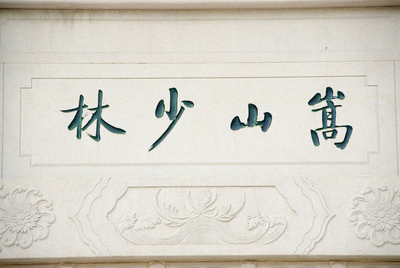 嵩山少林